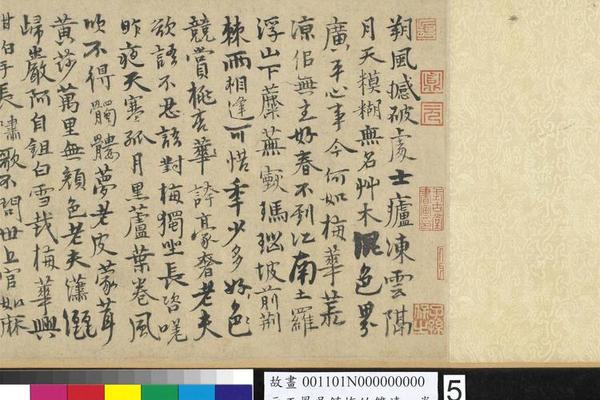 朔風撼破處士廬凍雲隔
月天模糊無名艸木混色界
廣平心事今何如梅華荒
涼佀無主好春不到江南土羅
浮山下蘼蕪煙瑪瑙坡前荊
棘雨相逢可惜年少多好色
競賞桃杏華誇豪奢老夫
欲語不忍語對梅獨坐長咨嗟
昨夜天寒孤月黑蘆葉卷風
吹不得髑髏夢老皮蒙茸
黃莎萬里無顏色老夫瀟灑
歸巖阿自鉏白雪栽梅華興
手長嘯歌不問世上官如麻
故畫 001101N000000000
5